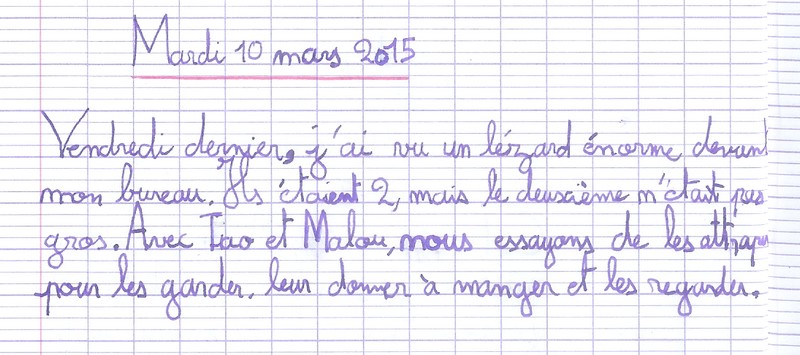 Mardi 10 mars 2015
Vendredi dernier, j'ai vu un lézard énorme devant
mon bureau. Ils étaient 2, mais le deuxième n'était pas
gros. Avec Tiao et Malou, nous essayons de les attraper
pour les garder, leur donner à manger et les regarder.